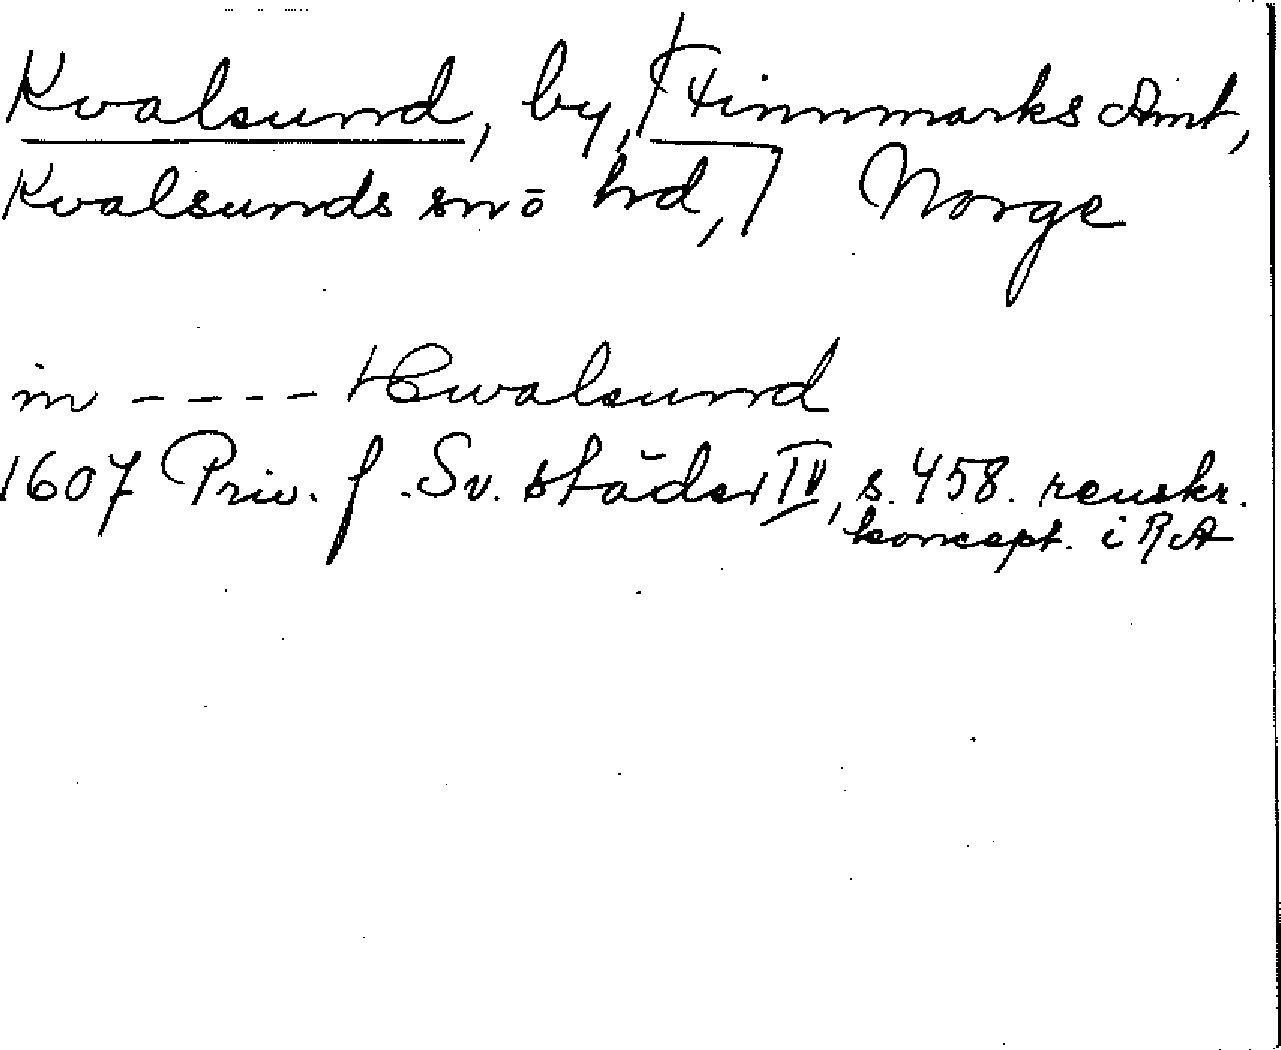 Kvalsund, by, Finnmarks Amt,
Kvalsunds sn ō hd, Norge
in - - - - Hwalsund
1607 Priv. f. Sv. städer IV, s. 458. renskr.
koncept. i RA